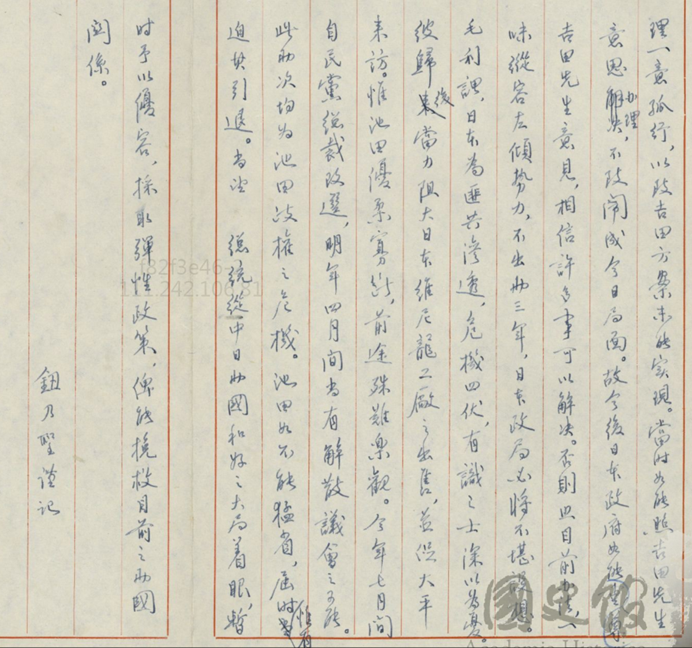 理一意孤行，以致吉田方案未能实現。當时如能照吉田先生
意思办理，不致闹成今日局面。故今後日本政府如能
吉田先生意見，相信許多事可以解决。不則照目前
味縱容左傾势力，不出兩三年，日本政局必将不堪設想。
毛利謂，日本為匪共滲透，危機四伏，有識之士深以為憂。
彼歸後當力阻大日本維尼龍工廠之出售，並促大平
来訪。惟池田優柔寡断，前途殊難楽觀。今年七月间
自民黨総裁改選，明年四月间當有解散議會之可能。
此兩次均為池田政權之危機。池田如不能猛省，屆时惟有
迫其引退。尚望 総統從中日兩國和好之大局着眼，暫
时予以優容，採取彈性政策，俾能挽救目前之兩國
関係。
鈕乃聖謹记
國史館
Academia Historica
f82f3e46
111.242.106.81